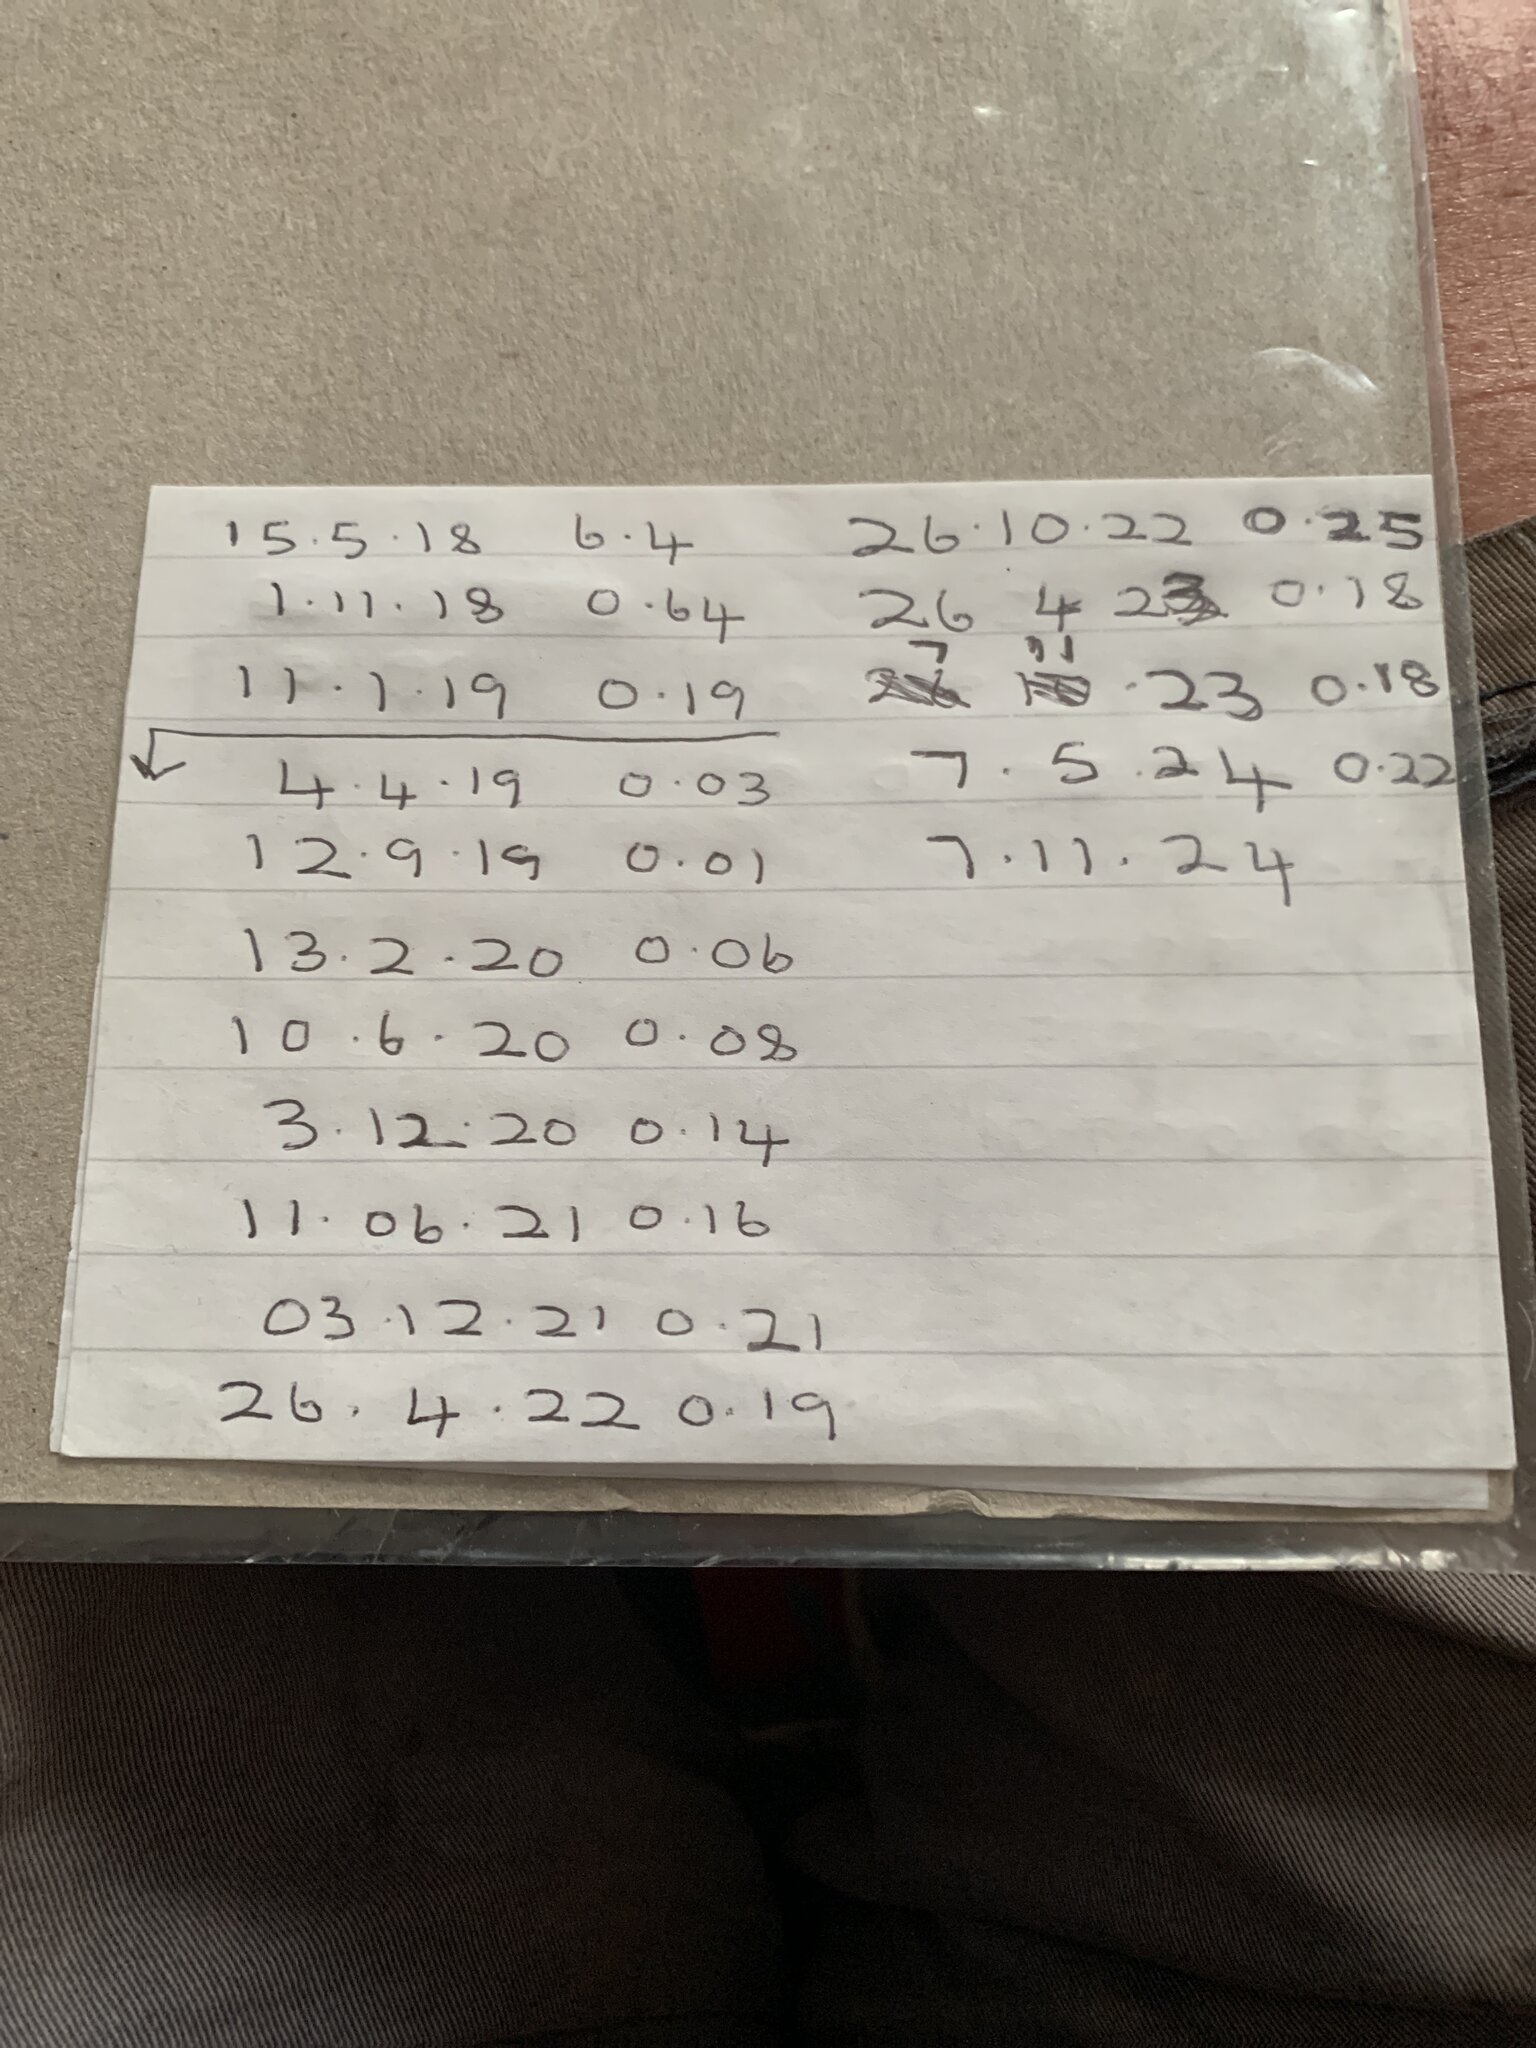 15.5.18 6.4
1.11.18 0.64
11.1.19 0.19
4.4.19 0.03
12.9.19 0.01
13.2.20 0.06
10.6.20 0.08
3.12.20 0.14
11.06.21 0.16
03.12.21 0.21
26.4.22 0.19
26.10.22 0.25
26 4 23 0.18
7 11 .23 0.18
7.5.24 0.22
7.11.24